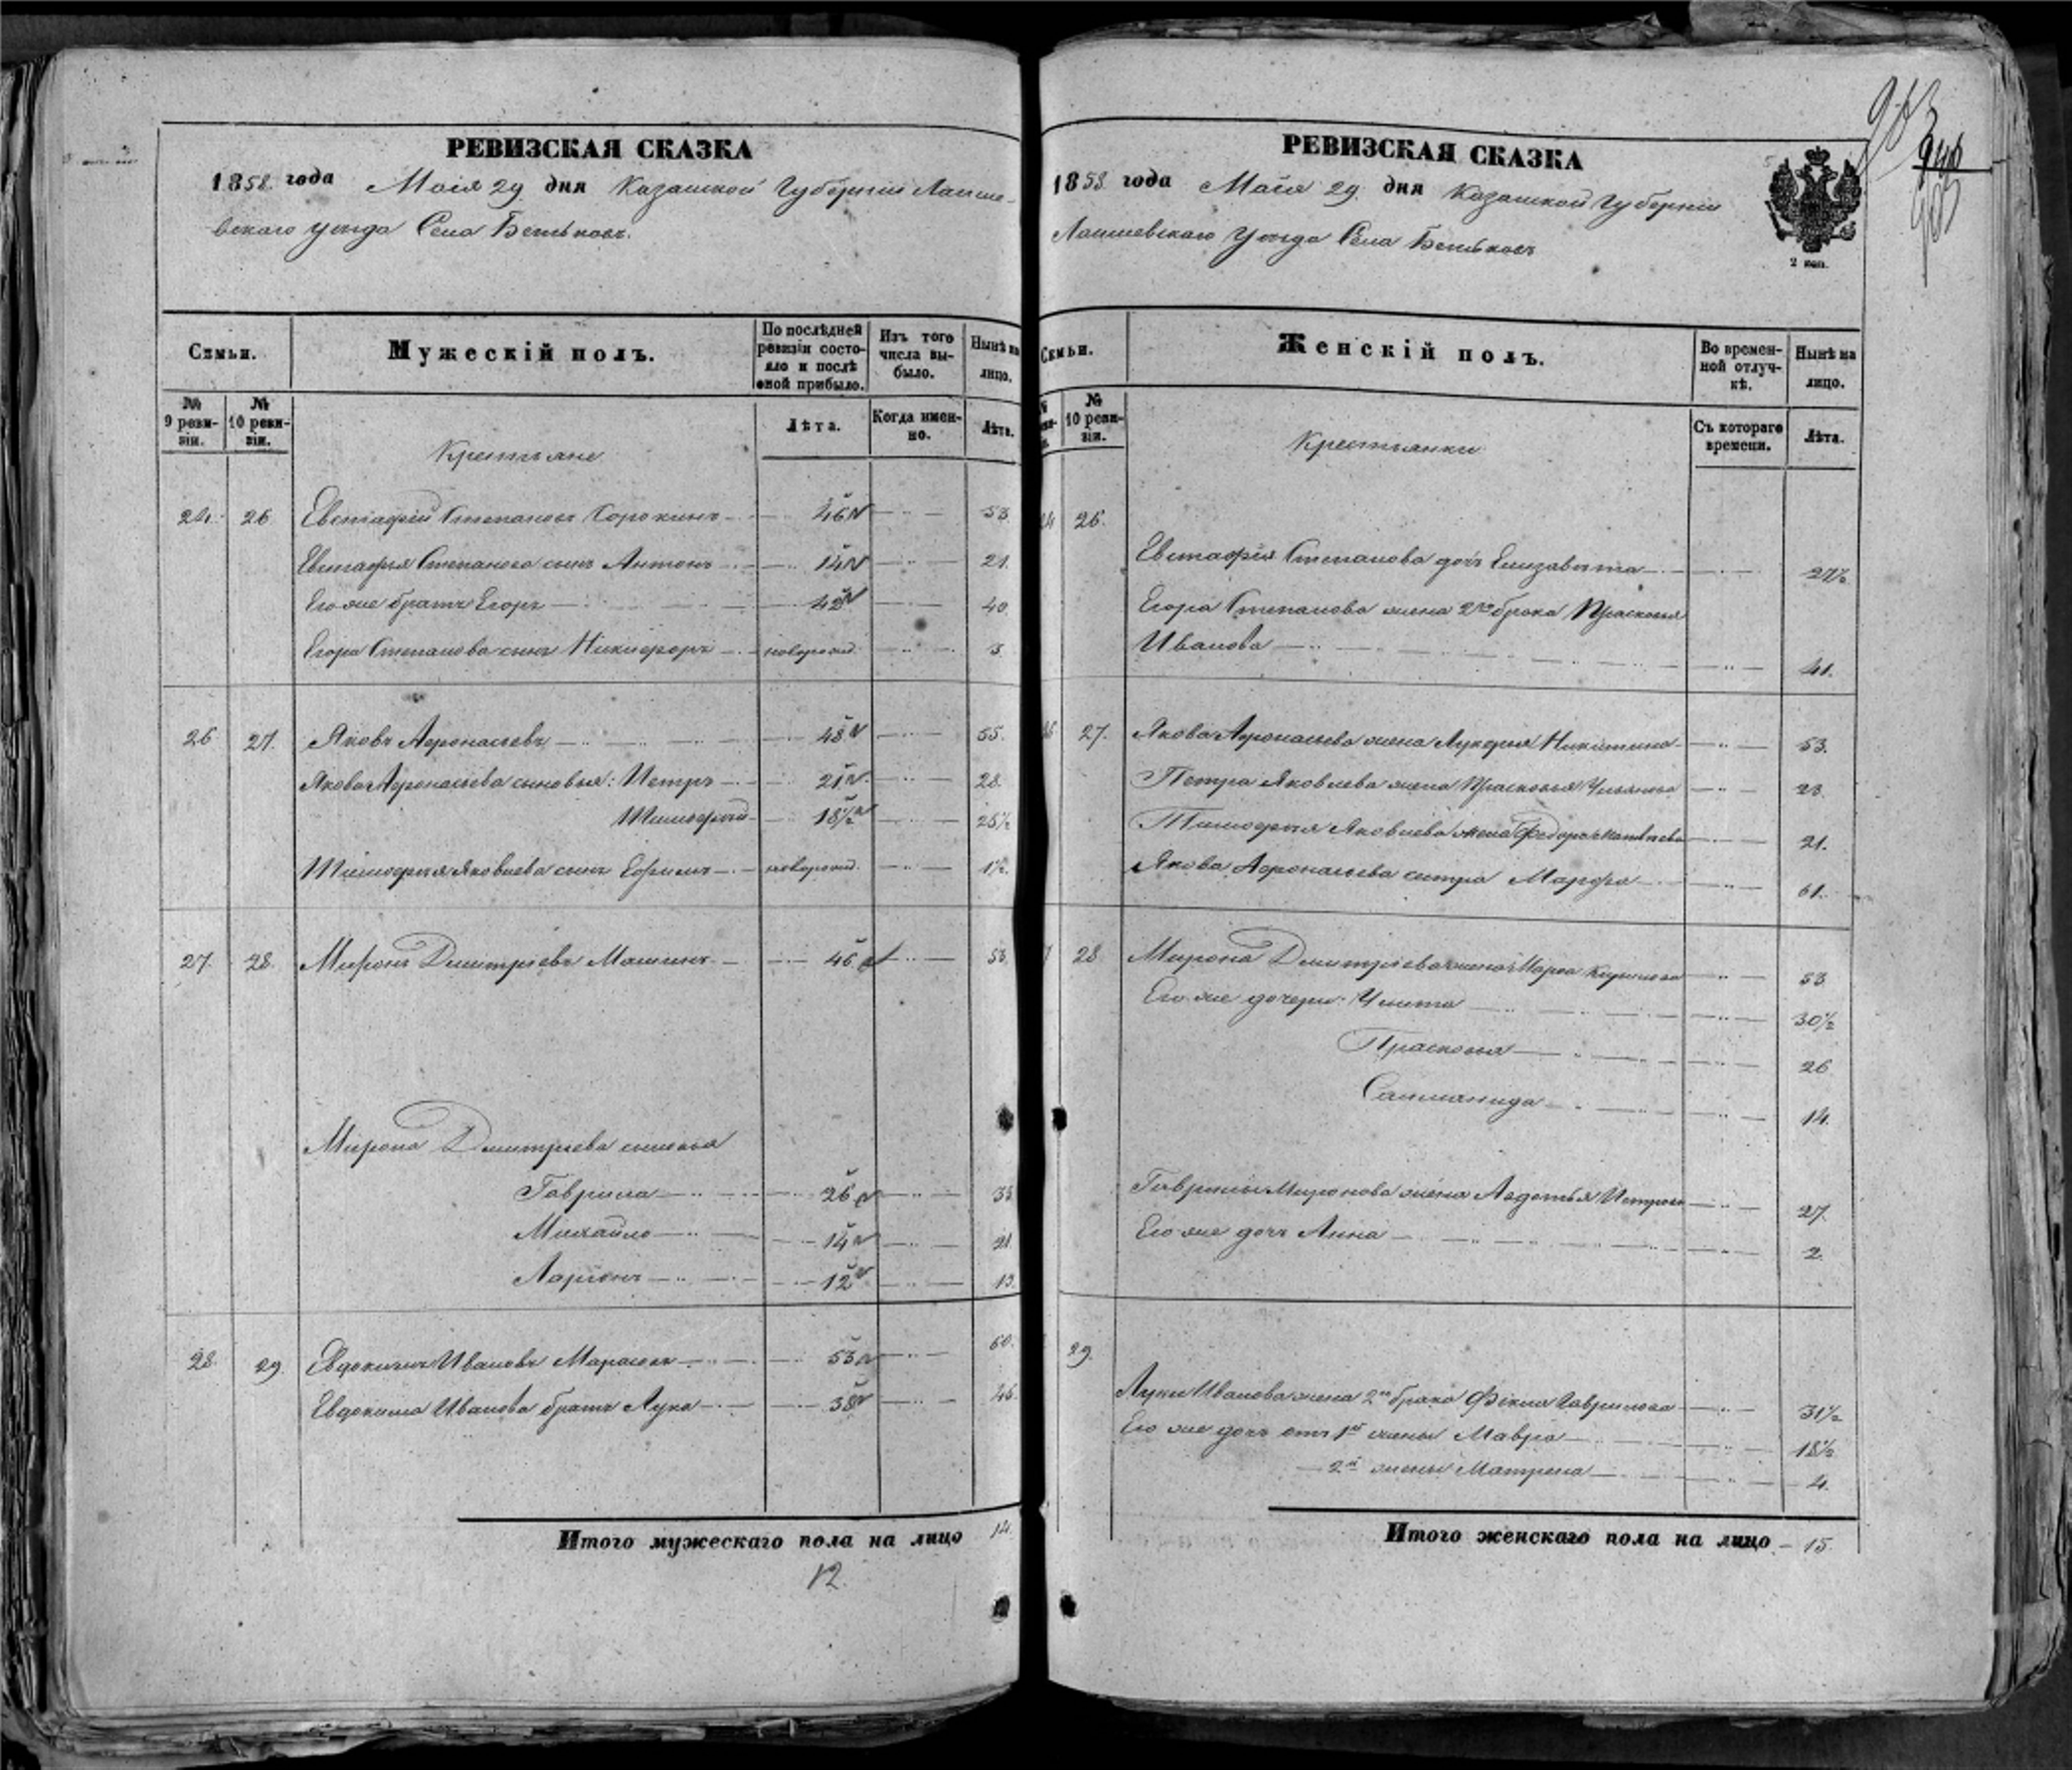 РЕВИЗСКАЯ СКАЗКА
1858 года Маія 29 дня Казанской Губерніи Лаише-
вскаго уѣзда Села Бетьковъ.
Семьи. Мужескій полъ. По послѣдней ревизіи состояло и послѣ оной прибыло. Изъ того числа выбыло. Нынѣ на лицо.
№ 9 ревизіи. № 10 ревизіи. Лѣта. Когда именно. Лѣта.
Крестьяне
24. 26 Евстафій Степановъ Сорокинъ 46 53.
Евстафья Степанова сынъ Антонъ 14 21.
Его же братъ Егоръ 42 40
Егора Степанова сынъ Никифоръ новорожд. 3.
26 27. Яковъ Афонасьевъ 48 55.
Якова Афонасьева сыновья: Петръ 21 28.
Тимофей 18½ 25½
Тимофея Яковлева сынъ Ефимъ новорожд. 1½.
27. 28. Миронъ Дмитріевъ Машинъ 46 53
Мирона Дмитріева сыновья
Гаврила 26 33
Михайло 14 21
Ларіонъ 12 19.
28. 29. Евдокимъ Ивановъ 53 60.
Евдокима Иванова братъ Лука 38 45.
Итого мужескаго пола на лицо 14.
12.
РЕВИЗСКАЯ СКАЗКА
1858 года Маія 29 дня Казанской Губерніи
Лаишевскаго Уѣзда Села Бетьковъ
2 коп.
Семьи. Женскій полъ. Во временной отлучкѣ. Нынѣ на лицо.
№ 10 ревизіи. Съ котораго времени. Лѣта.
Крестьянки
24 26. Евстафія Степанова дочь Елизавета 27½
Егора Степанова жена 2го брака Прасковья
Иванова 41.
27. Якова Афонасьева жена Лукерья Никитина 53.
Петра Яковлева жена Прасковья Ульянова 23.
Тимофея Яковлева жена Федора Матвѣева 21.
Якова Афонасьева сестра Марфа 61.
28 Мирона Дмитріева жена Марфа 53
Его же дочери: Улита 30½
Прасковья 26
Саломанида 14.
Гаврилы Миронова жена Авдотья Петрова 27.
Его же дочь Анна 2.
29. Луки Иванова жена 2го брака Фекла Гаврилова 31½
Его же дочь отъ 1й жены Мавра 18½
2й жены Матрена 4.
Итого женскаго пола на лицо 15.